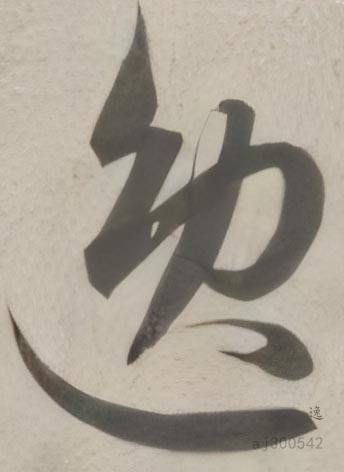 逸
逸
aj300542